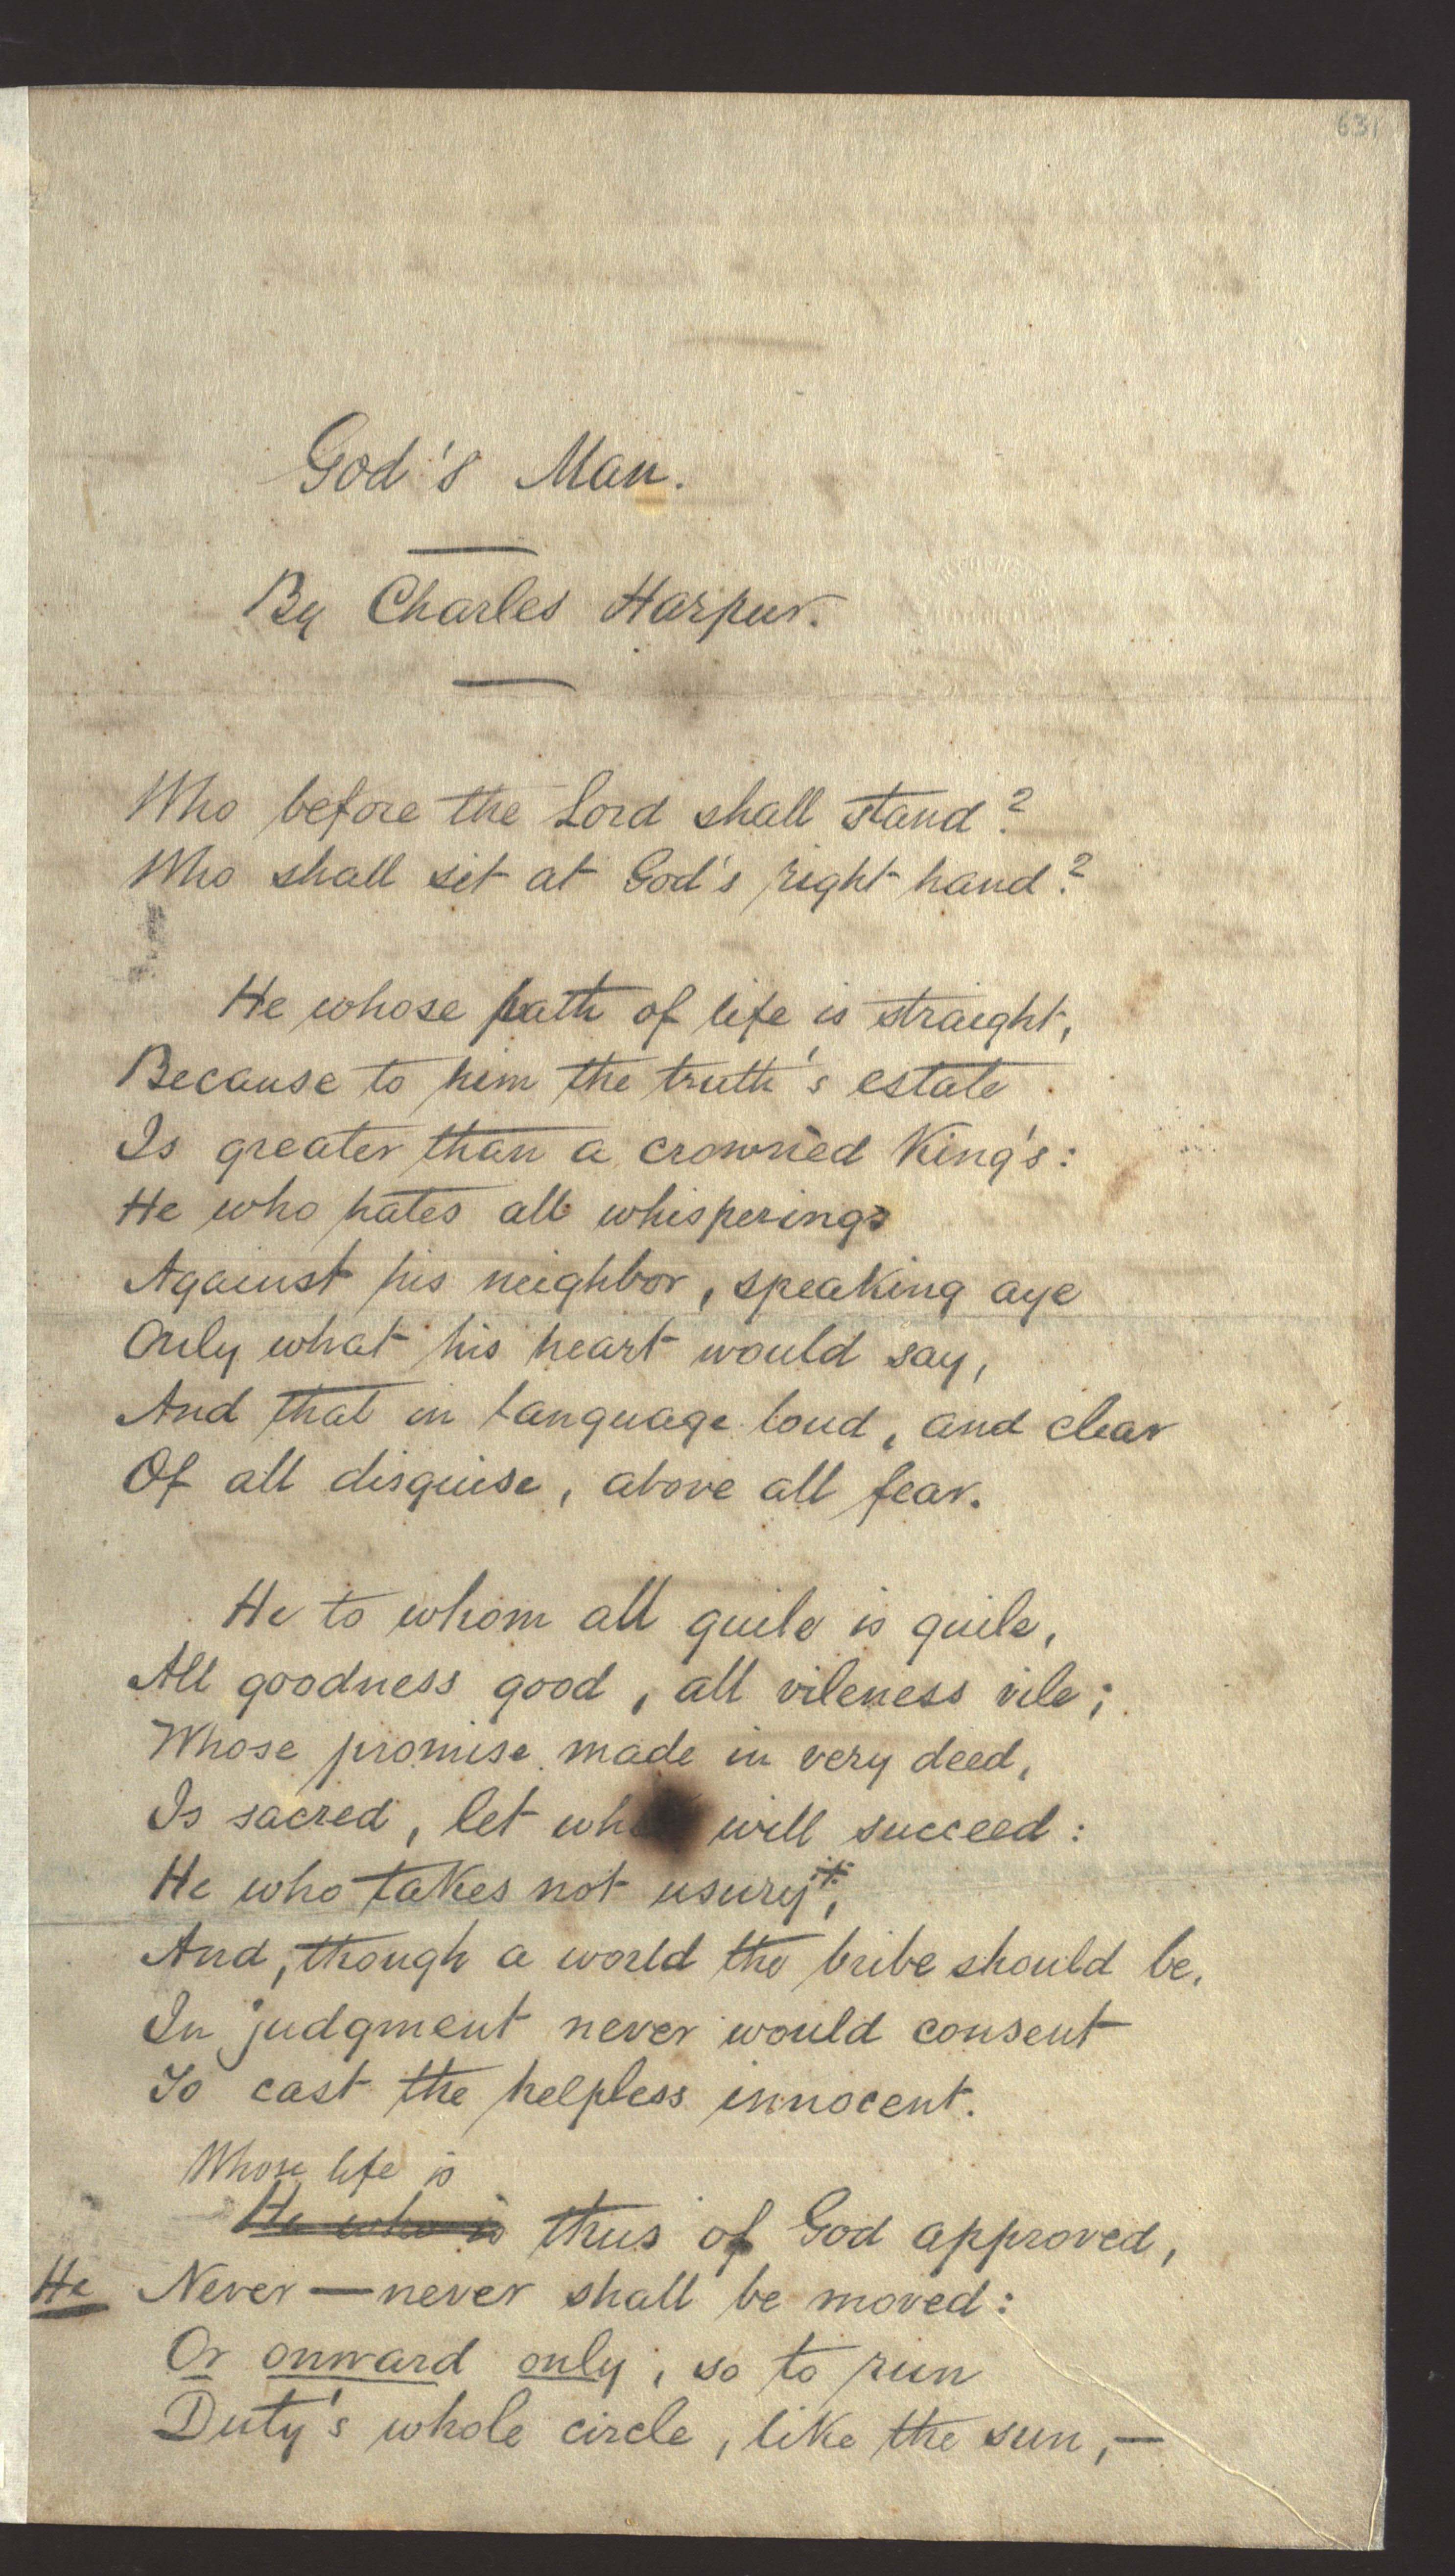 631
God's Man.
By Charles Harpur.
Who before the Lord shall stand?
Who shall sit at God's right hand?
He whose path of life is straight,
Because to him the truth's estate
Is greater than a crownèd King's:
He who hates all whisperings
Against his neighbor, speaking aye
Only what his heart would say,
And that in language loud, and clear
Of all disguise, above all fear.
He to whom all guile is guile,
All goodness good, all vileness vile;
Whose promise made in very deed,
Is sacred, let will succeed:
He who takes not usury*,
And, though a world the bribe should be,
In judgment never would consent
To cast the helpless innocent.
Whose life is
He who is thus of God approved,
He Never—never shall be moved:
Or onward only, so to run
Duty's whole circle, like the sun,—